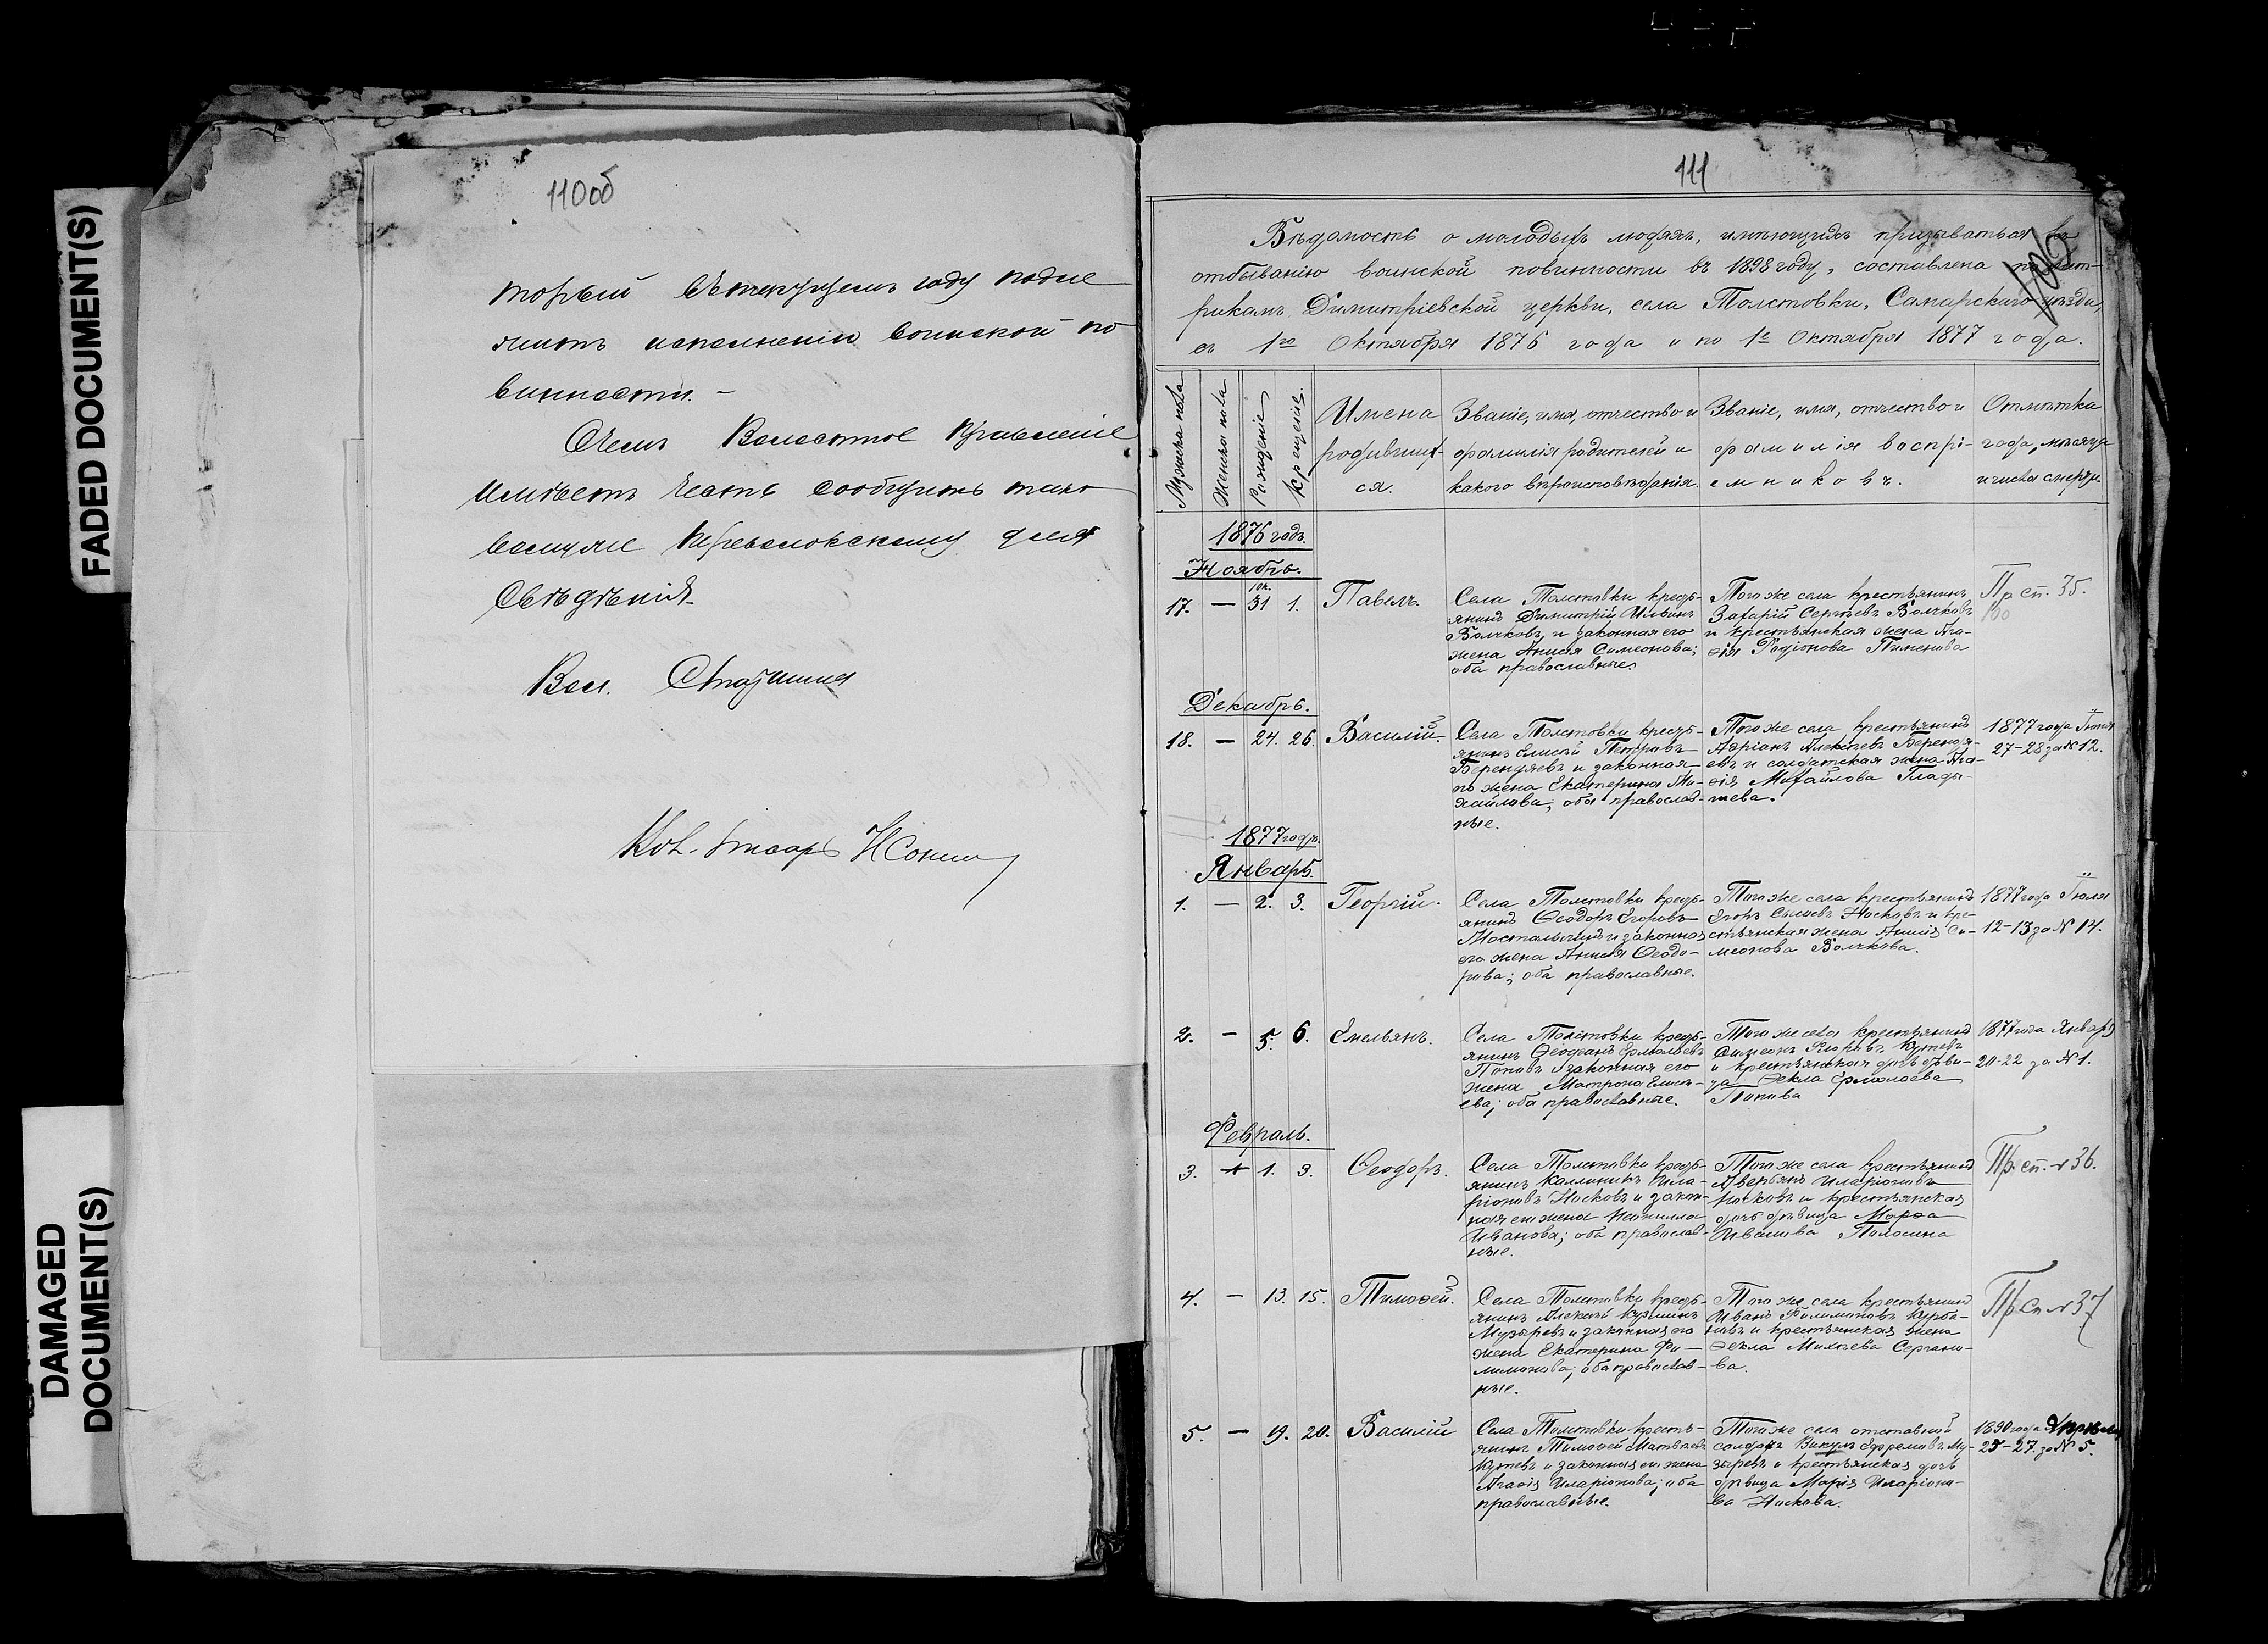 FADED DOCUMENT(S)
DAMAGED
DOCUMENT(S)
110об
торый въ текущемъ году подле
житъ исполненію воинской по
винности. –
О чемъ Волостное Правленіе
имѣетъ честь сообщить тако
вому же
свѣдѣнія.
Вол. Старшина
писарь
111
Вѣдомость о молодыхъ людяхъ, имѣющихъ призываться къ
отбыванію воинской повинности въ 1898 году, составлена по мет-
рикамъ Димитріевской церкви, села Толстовки, Самарскаго уѣзда,
съ 1го Октября 1876 года и по 1е Октября 1877 года.
Мужска пола
Женска пола
Рожденіе
Крещеніе
Имена
родивших-
ся.
Званіе, имя, отчество и
фамилія родителей и
какого вѣроисповѣданія.
Званіе, имя, отчество и
фамилія воспрі-
емниковъ.
Отмѣтка
года, мѣсяца
и числа смерти
1876 годъ.
Ноябрь.
17. — Ок. 31 1. Павелъ.
Села Толстовки кресть-
янинъ Димитрій Ильинъ
Волчковъ, и законная его
жена Анисія Симеонова;
оба православные.
Того же села крестьянинъ
Захарій Сергѣевъ Волчковъ
и крестьянская жена Ага-
ѳія Родіонова Пименова
Пр. сп. 35.
Декабрь.
18. — 24. 26. Василій.
Села Толстовки кресть-
янинъ Елисей Петровъ
Берендяевъ и законная
его жена Екатерина Ми-
хайлова; оба православ-
ные.
Того же села крестьянинъ
Адріанъ Алексѣевъ Берендя-
евъ и солдатская жена Ага-
ѳія Михайлова Глады-
шева.
1877 года Іюня
27–28 за № 12.
1877 годъ.
Январь.
1. — 2. 3. Георгій.
Села Толстовки кресть-
янинъ Ѳеодоръ Егоровъ
и законная
его жена Анисія Ѳеодо-
рова; оба православные.
Того же села крестьянинъ
Егоръ Сысоевъ Носковъ и кре-
стьянская жена Анисія Си-
меонова Волчкова.
1877 года Іюля
12–13 за № 14.
2. — 5. 6. Емельянъ.
Села Толстовки кресть-
янинъ Ермолаевъ
Поповъ и законная его
жена Матрона Елисѣ-
ева; оба православные.
Того же села крестьянинъ
Симеонъ
и крестьянская дочь дѣви-
ца Ѳекла Ермолаева
Попова
1877 года Января
20-22 за № 1.
Февраль.
3. — 1. 3. Ѳеодоръ.
Села Толстовки кресть-
янинъ Каллиникъ Ила-
ріоновъ Носковъ и закон-
ная его жена Неонилла
Иванова; оба православ-
ные.
Того же села крестьянинъ
Аверьянъ Иларіоновъ
Носковъ и крестьянская
дочь дѣвица Марѳа
Иванова Полосина
Пр. сп. № 36.
4. — 13. 15. Тимоѳей.
Села Толстовки кресть-
янинъ Алексѣй Кузминъ
Музыревъ и законная его
жена Екатерина Фи-
лимонова; оба православ-
ные.
Того же села крестьянинъ
Иванъ Филимоновъ Курба-
товъ и крестьянская жена
Ѳекла Михѣева
ва.
Пр. Сп № 37
5. — 19. 20. Василій
Села Толстовки кресть-
янинъ Тимоѳей Матвѣевъ
и законная его жена
Агаѳія Иларіонова; оба
православные.
Того же села отставной
солдатъ Викулъ Ефремовъ Му-
зыревъ и крестьянская дочь
дѣвица Марія Иларіоно-
ва Носкова.
1890 года Апрѣля
25–27 за № 5.